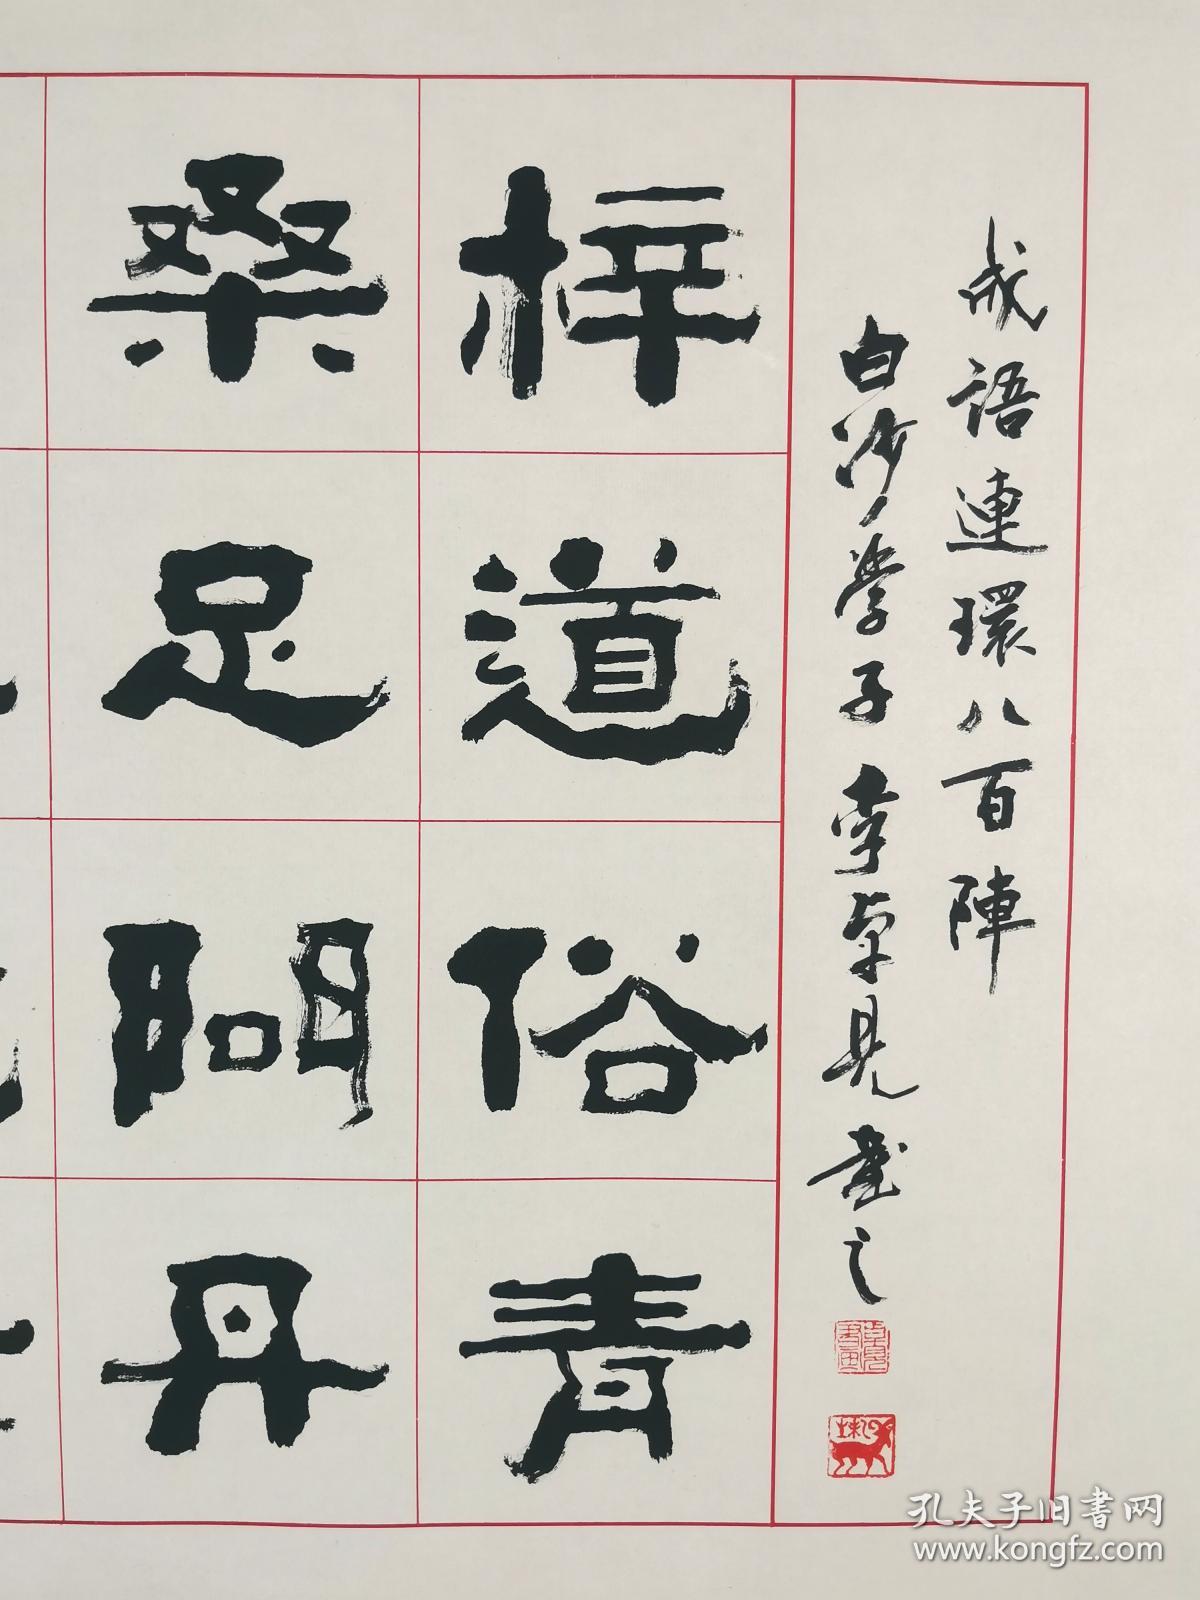 桑梓
足道
問俗
丹青
成語連環八百陣
白沙學子李卓見書之
孔夫子旧書网
www.kongfz.com